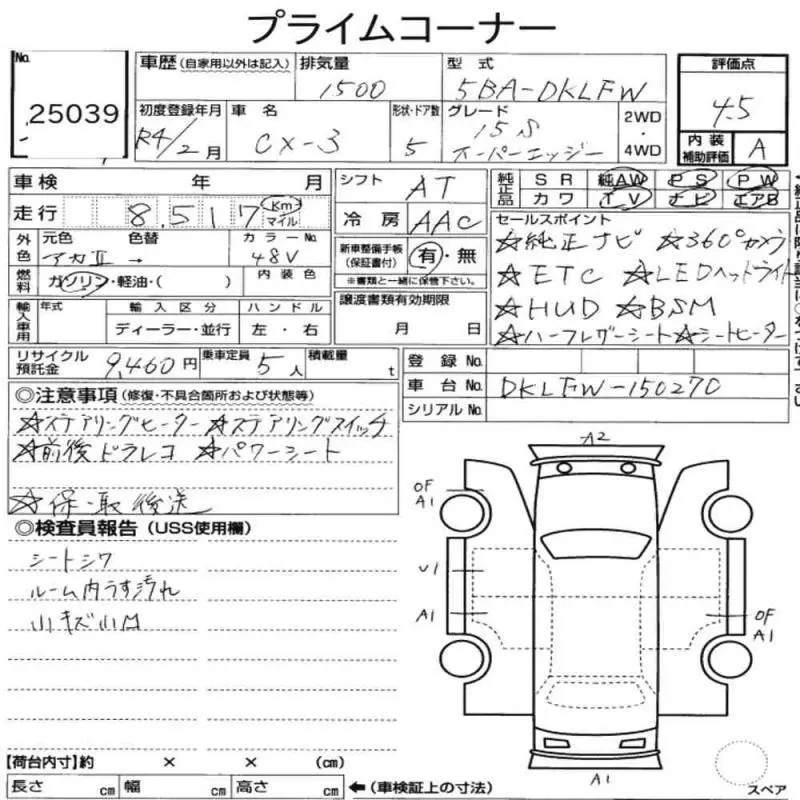 プライムコーナー
No. 25039
車歴 (自家用以外は記入) 排気量 1500 型式 5BA-DKLFW
評価点 4.5
初度登録年月 R4/2月 車名 CX-3 形状・ドア数 5 グレード 15S スーパーエッジー 2WD・4WD
内装補助評価 A
車検 年 月 シフト AT 純正品 SR 純AW PS PW
カワ TV ナビ エアB
走行 8,517 Km マイル 冷房 AAC
セールスポイント
外色 元色 アカⅡ 色替 → カラーNo. 48V 新車整備手帳(保証書付) 有・無
※書類と一緒に保管下さい。
☆純正ナビ ☆360°カメラ
☆ETC ☆LEDヘッドライト
☆HUD ☆BSM
☆ハーフレザーシート☆シートヒーター
燃料 ガソリン・軽油・( ) 内装色
譲渡書類有効期限 月 日
輸入車用 年式 輸入区分 ディーラー・並行 ハンドル 左・右
リサイクル預託金 9,460円 乗車定員 5人 積載量 t
登録No.
車台No. DKLFW-150270
シリアルNo.
◎注意事項 (修復・不具合箇所および状態等)
☆ステアリングヒーター ☆ステアリングスイッチ
☆前後ドラレコ ☆パワーシート
☆保・取 後送
◎検査員報告 (USS使用欄)
シートシワ
ルーム内うす汚れ
小キズ小凹
A2
OF
A1
U1
A1
OF
A1
A1
スペア
【荷台内寸】約 × × (cm)
長さ cm 幅 cm 高さ cm ←(車検証上の寸法)